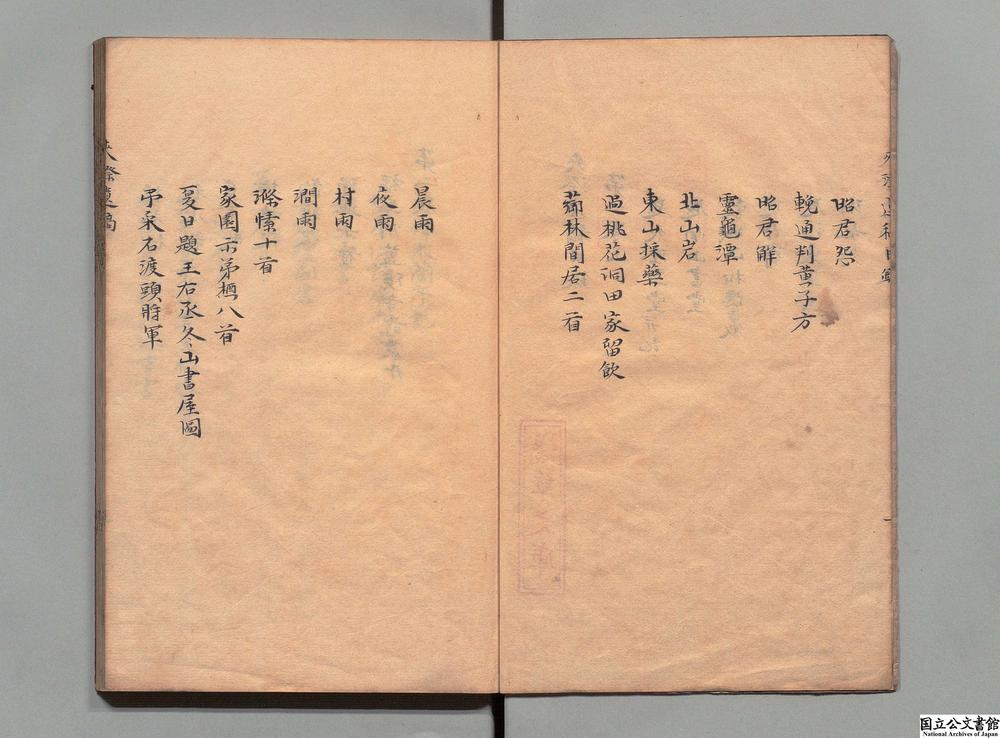 昭君怨
輓通判黃子方
昭君解
靈龜潭
北山岩
東山採藥
過桃花洞田家留飲
薌林間居二首
晨雨
夜雨
村雨
澗雨
滌愫十首
家園示弟槱八首
夏日題王右丞冬山書屋圖
采石渡頭將軍
夾漈遺稿
国立公文書館
National Archives of Japan